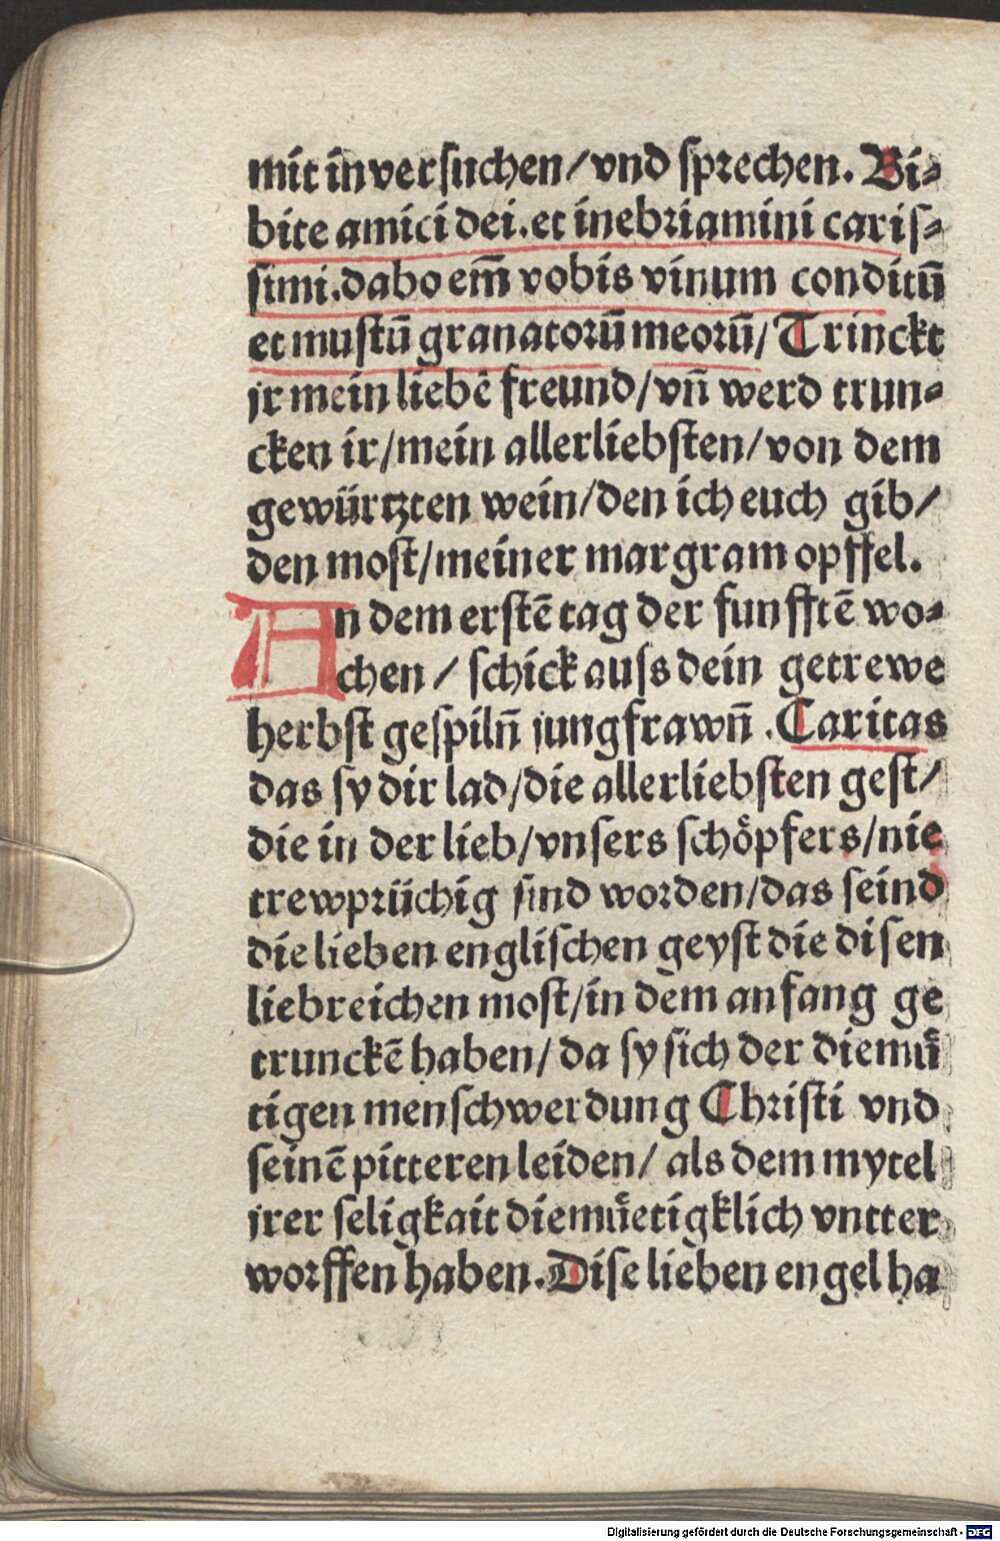 mit in versuchen/vnd sprechen. Bi⸗
bite amici dei.et inebriamini caris⸗
simi.dabo em̃ vobis vinum conditũ
et mustũ granatorũ meorũ/Trinckt
jr mein liebẽ freund/vñ werd trun⸗
cken ir/mein allerliebsten/von dem
gewürtzten wein/den ich euch gib/
den most/meiner margram opffel.
An dem erstẽ tag der funfftẽ wo⸗
chen/ schick auss dein getrewe
herbst gespilñ jungfrawñ .Caritas
das sy dir lad/die allerliebsten gest/
die in der lieb/vnsers schöpfers/nie
trewprüchig sind worden/das seind
die lieben englischen geyst die disen
liebreichen most/in dem anfang ge
trunckẽ haben/da sy sich der diemuͤ
tigen menschwerdung Christi vnd
seinẽ pitteren leiden/ als dem mytel
jrer seligkait diemuͤetigklich vntter
worffen haben.Dise lieben engel ha
Digitalisierung gefördert durch die Deutsche Forschungsgemeinschaft - DFG